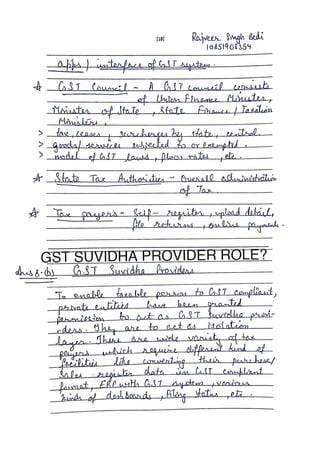 [18] Rajveer Singh Bedi
10851908354
apps / interface of GST system.
☆ GST Council - A GST council consists
of Union Finance Minister,
Minister of State, State Finance / Taxation
Ministers.
> tax, cesses, surcharges by state, central
> goods / services subjected to or exempted.
> model of GST laws, floor rates, etc.
☆ State Tax Authorities - Overall administration
of Tax.
☆ Tax payers - Self - register, upload details,
file returns, online payments.
GST SUVIDHA PROVIDER ROLE?
Ans 8-(b) GST Suvidha Providers
To enable taxable persons to GST compliant,
private entities have been granted
permission to act as GST Suvidha provi-
ders. They are to act as isolation
layer. There are wide variety of tax
payers which require different kind of
facilities like converting their purchase/
Sales register data in GST compliant
format, ERP with GST system, various
kinds of dashboards, filing status, etc.